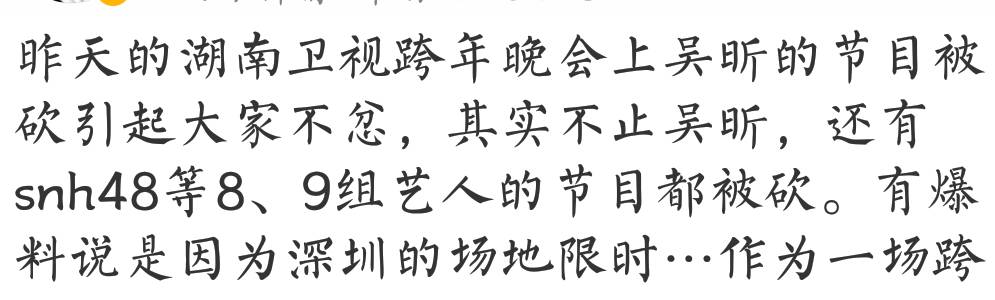 昨天的湖南卫视跨年晚会上吴昕的节目被
砍引起大家不忿，其实不止吴昕，还有
snh48等8、9组艺人的节目都被砍。有爆
料说是因为深圳的场地限时…作为一场跨